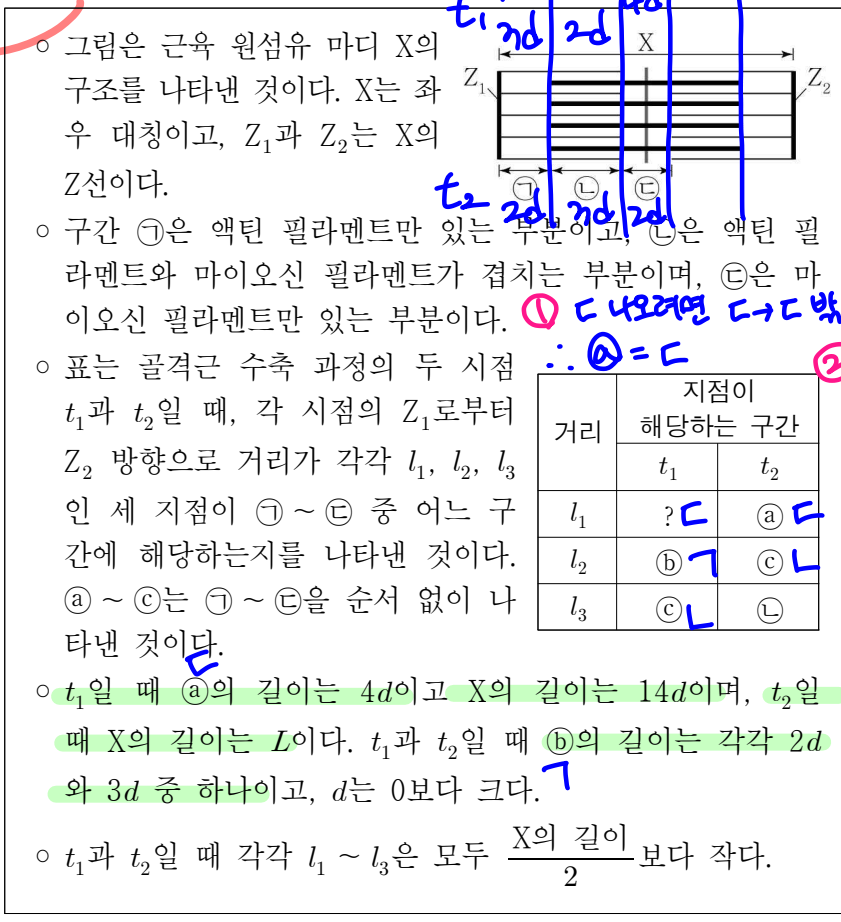 t₁ 3d 2d 4d
◦ 그림은 근육 원섬유 마디 X의
구조를 나타낸 것이다. X는 좌
우 대칭이고, Z₁과 Z₂는 X의
Z선이다.
X
Z₁ Z₂
㉠ ㉡ ㉢
t₂ 2d 3d 2d
◦ 구간 ㉠은 액틴 필라멘트만 있는 부분이고, ㉡은 액틴 필
라멘트와 마이오신 필라멘트가 겹치는 부분이며, ㉢은 마
이오신 필라멘트만 있는 부분이다.
① ㄷ 나오려면 ㄷ→ㄷ 밖
∴ ⓐ = ㄷ
②
◦ 표는 골격근 수축 과정의 두 시점
t₁과 t₂일 때, 각 시점의 Z₁로부터
Z₂ 방향으로 거리가 각각 l₁, l₂, l₃
인 세 지점이 ㉠~㉢ 중 어느 구
간에 해당하는지를 나타낸 것이다.
ⓐ~ⓒ는 ㉠~㉢을 순서 없이 나
타낸 것이다.
거리 지점이 해당하는 구간
t₁ t₂
l₁ ? ㄷ ⓐ ㄷ
l₂ ⓑ ㄱ ⓒ ㄴ
l₃ ⓒ ㄴ ㉡
ㄷ
◦ t₁일 때 ⓐ의 길이는 4d이고 X의 길이는 14d이며, t₂일
때 X의 길이는 L이다. t₁과 t₂일 때 ⓑ의 길이는 각각 2d
와 3d 중 하나이고, d는 0보다 크다.
ㄱ
◦ t₁과 t₂일 때 각각 l₁ ~ l₃은 모두 X의 길이/2 보다 작다.